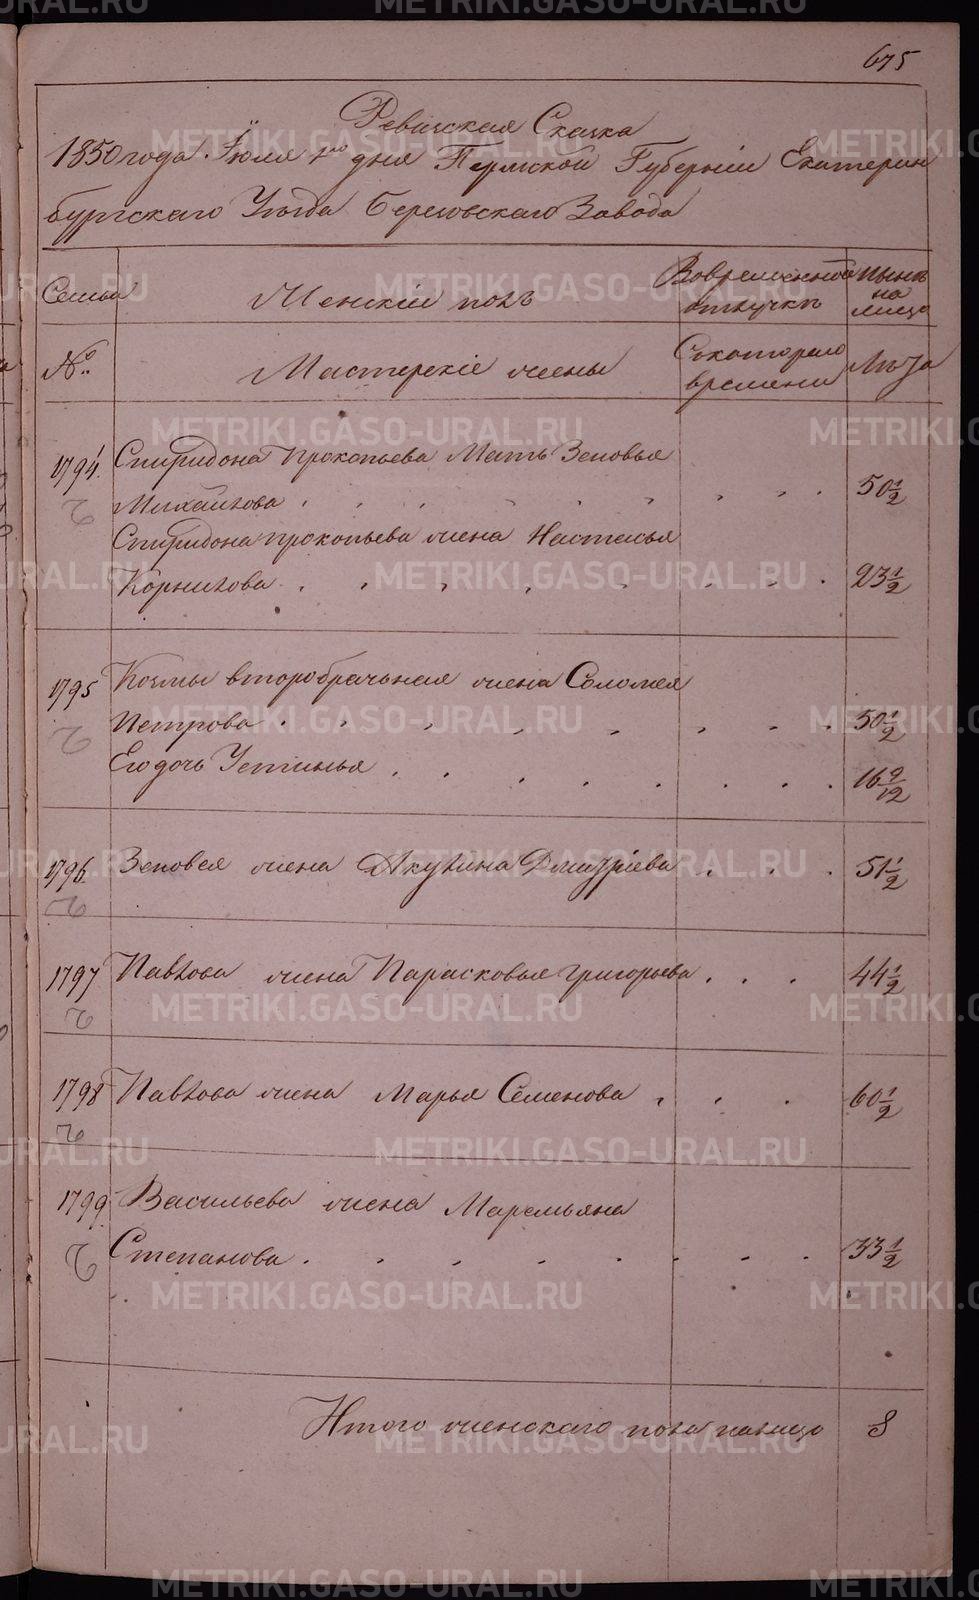 675
Ревизская Сказка
1850 года Iюля 1го дня Пермской Губернiи Екатерин
бургскаго Уѣзда Березовскаго Завода
Семьи Женскiй полъ Вовременной отлучкѣ Нынѣ на лицо
№ Мастерскiе жены Скотораго времени Лѣта
1794. Спиридона Прокопьева Мать Зеновья
Михайлова 50 1/2
Спиридона прокопьева жена Настасья
Корнилова 23 1/2
1795 Козмы второбрачьная жена Соломея
Петрова 50 1/2
Его дочь Устинья 16 9/12
1796 Зеновея жена Акулина Дмитрiева 51 1/2
1797 Павлова жена Парасковья григорьева 44 1/2
1798 Павлова жена Марья Семенова 60 1/2
1799 Васильева жена Маремьяна
Степанова 33 1/2
Итого женскаго пола налицо 8
METRIKI.GASO-URAL.RU